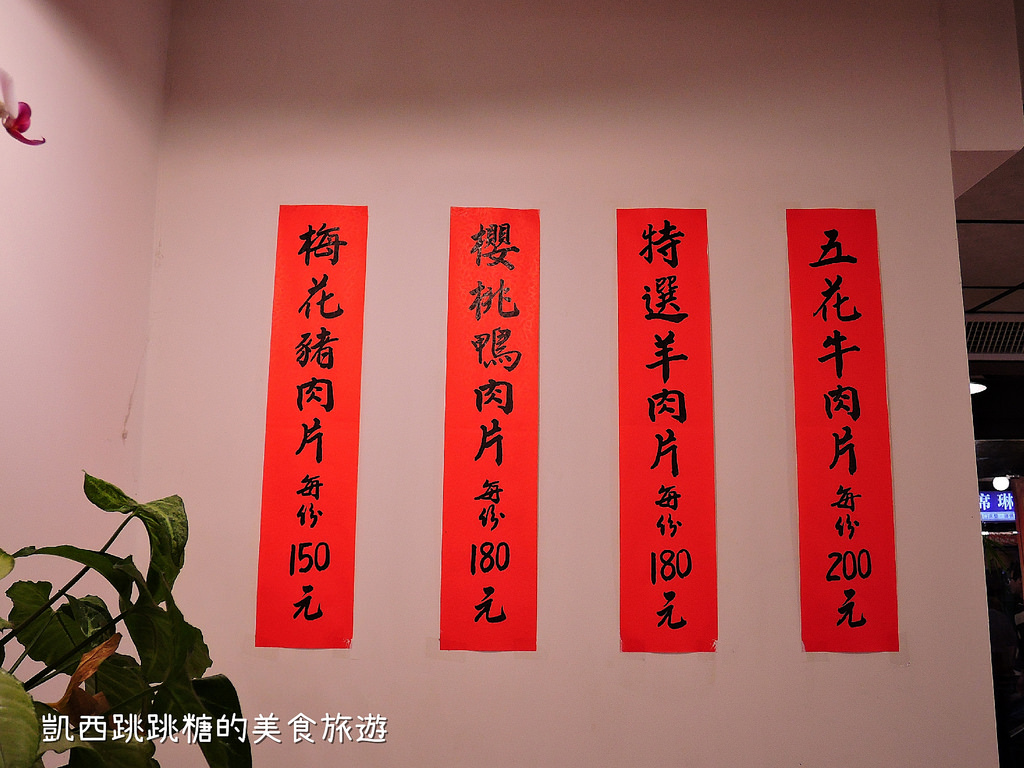 梅花豬肉片每份150元
櫻桃鴨肉片每份180元
特選羊肉片每份180元
五花牛肉片每份200元
席琳
凱西跳跳糖的美食旅遊